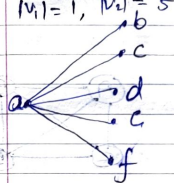 |V₁| = 1, |V₂| = 5
b
c
d
a
e
f